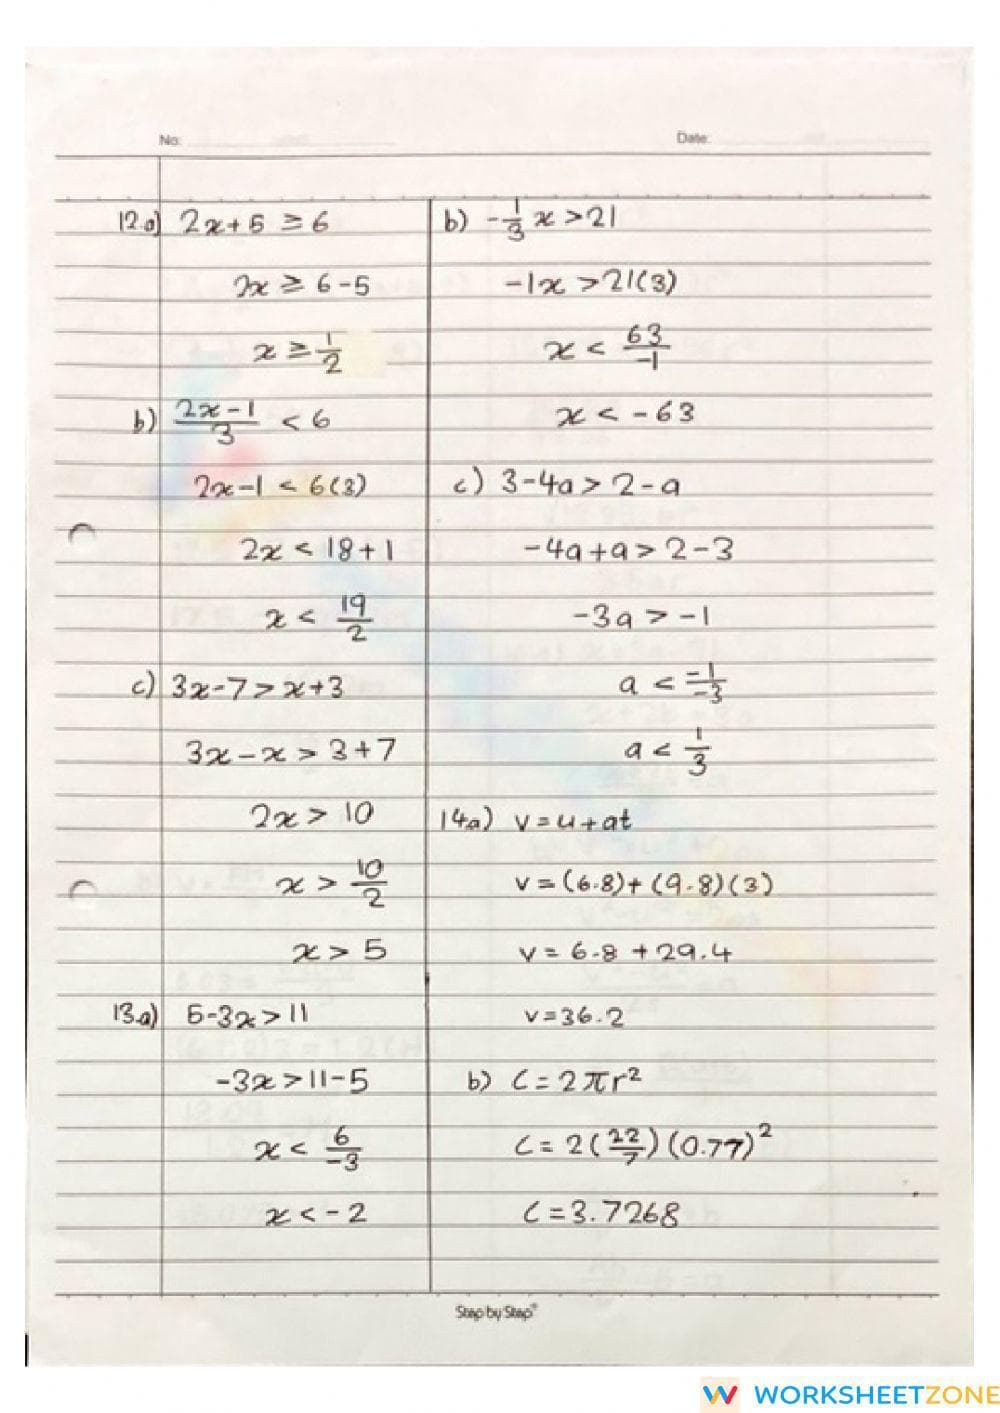 No:
Date:
12.a) 2x+5 ≥ 6
2x ≥ 6-5
x ≥ 1/2
b) (2x-1)/3 < 6
2x-1 < 6(3)
2x < 18+1
x < 19/2
c) 3x-7 > x+3
3x-x > 3+7
2x > 10
x > 10/2
x > 5
13.a) 5-3x > 11
-3x > 11-5
x < 6/-3
x < -2
b) -1/3 x > 21
-1x > 21(3)
x < 63/-1
x < -63
c) 3-4a > 2-a
-4a+a > 2-3
-3a > -1
a < -1/-3
a < 1/3
14a) v = u+at
v = (6.8)+(9.8)(3)
v = 6.8 + 29.4
v = 36.2
b) C = 2πr²
C = 2(22/7)(0.77)²
C = 3.7268
Step by Step®
WORKSHEETZONE